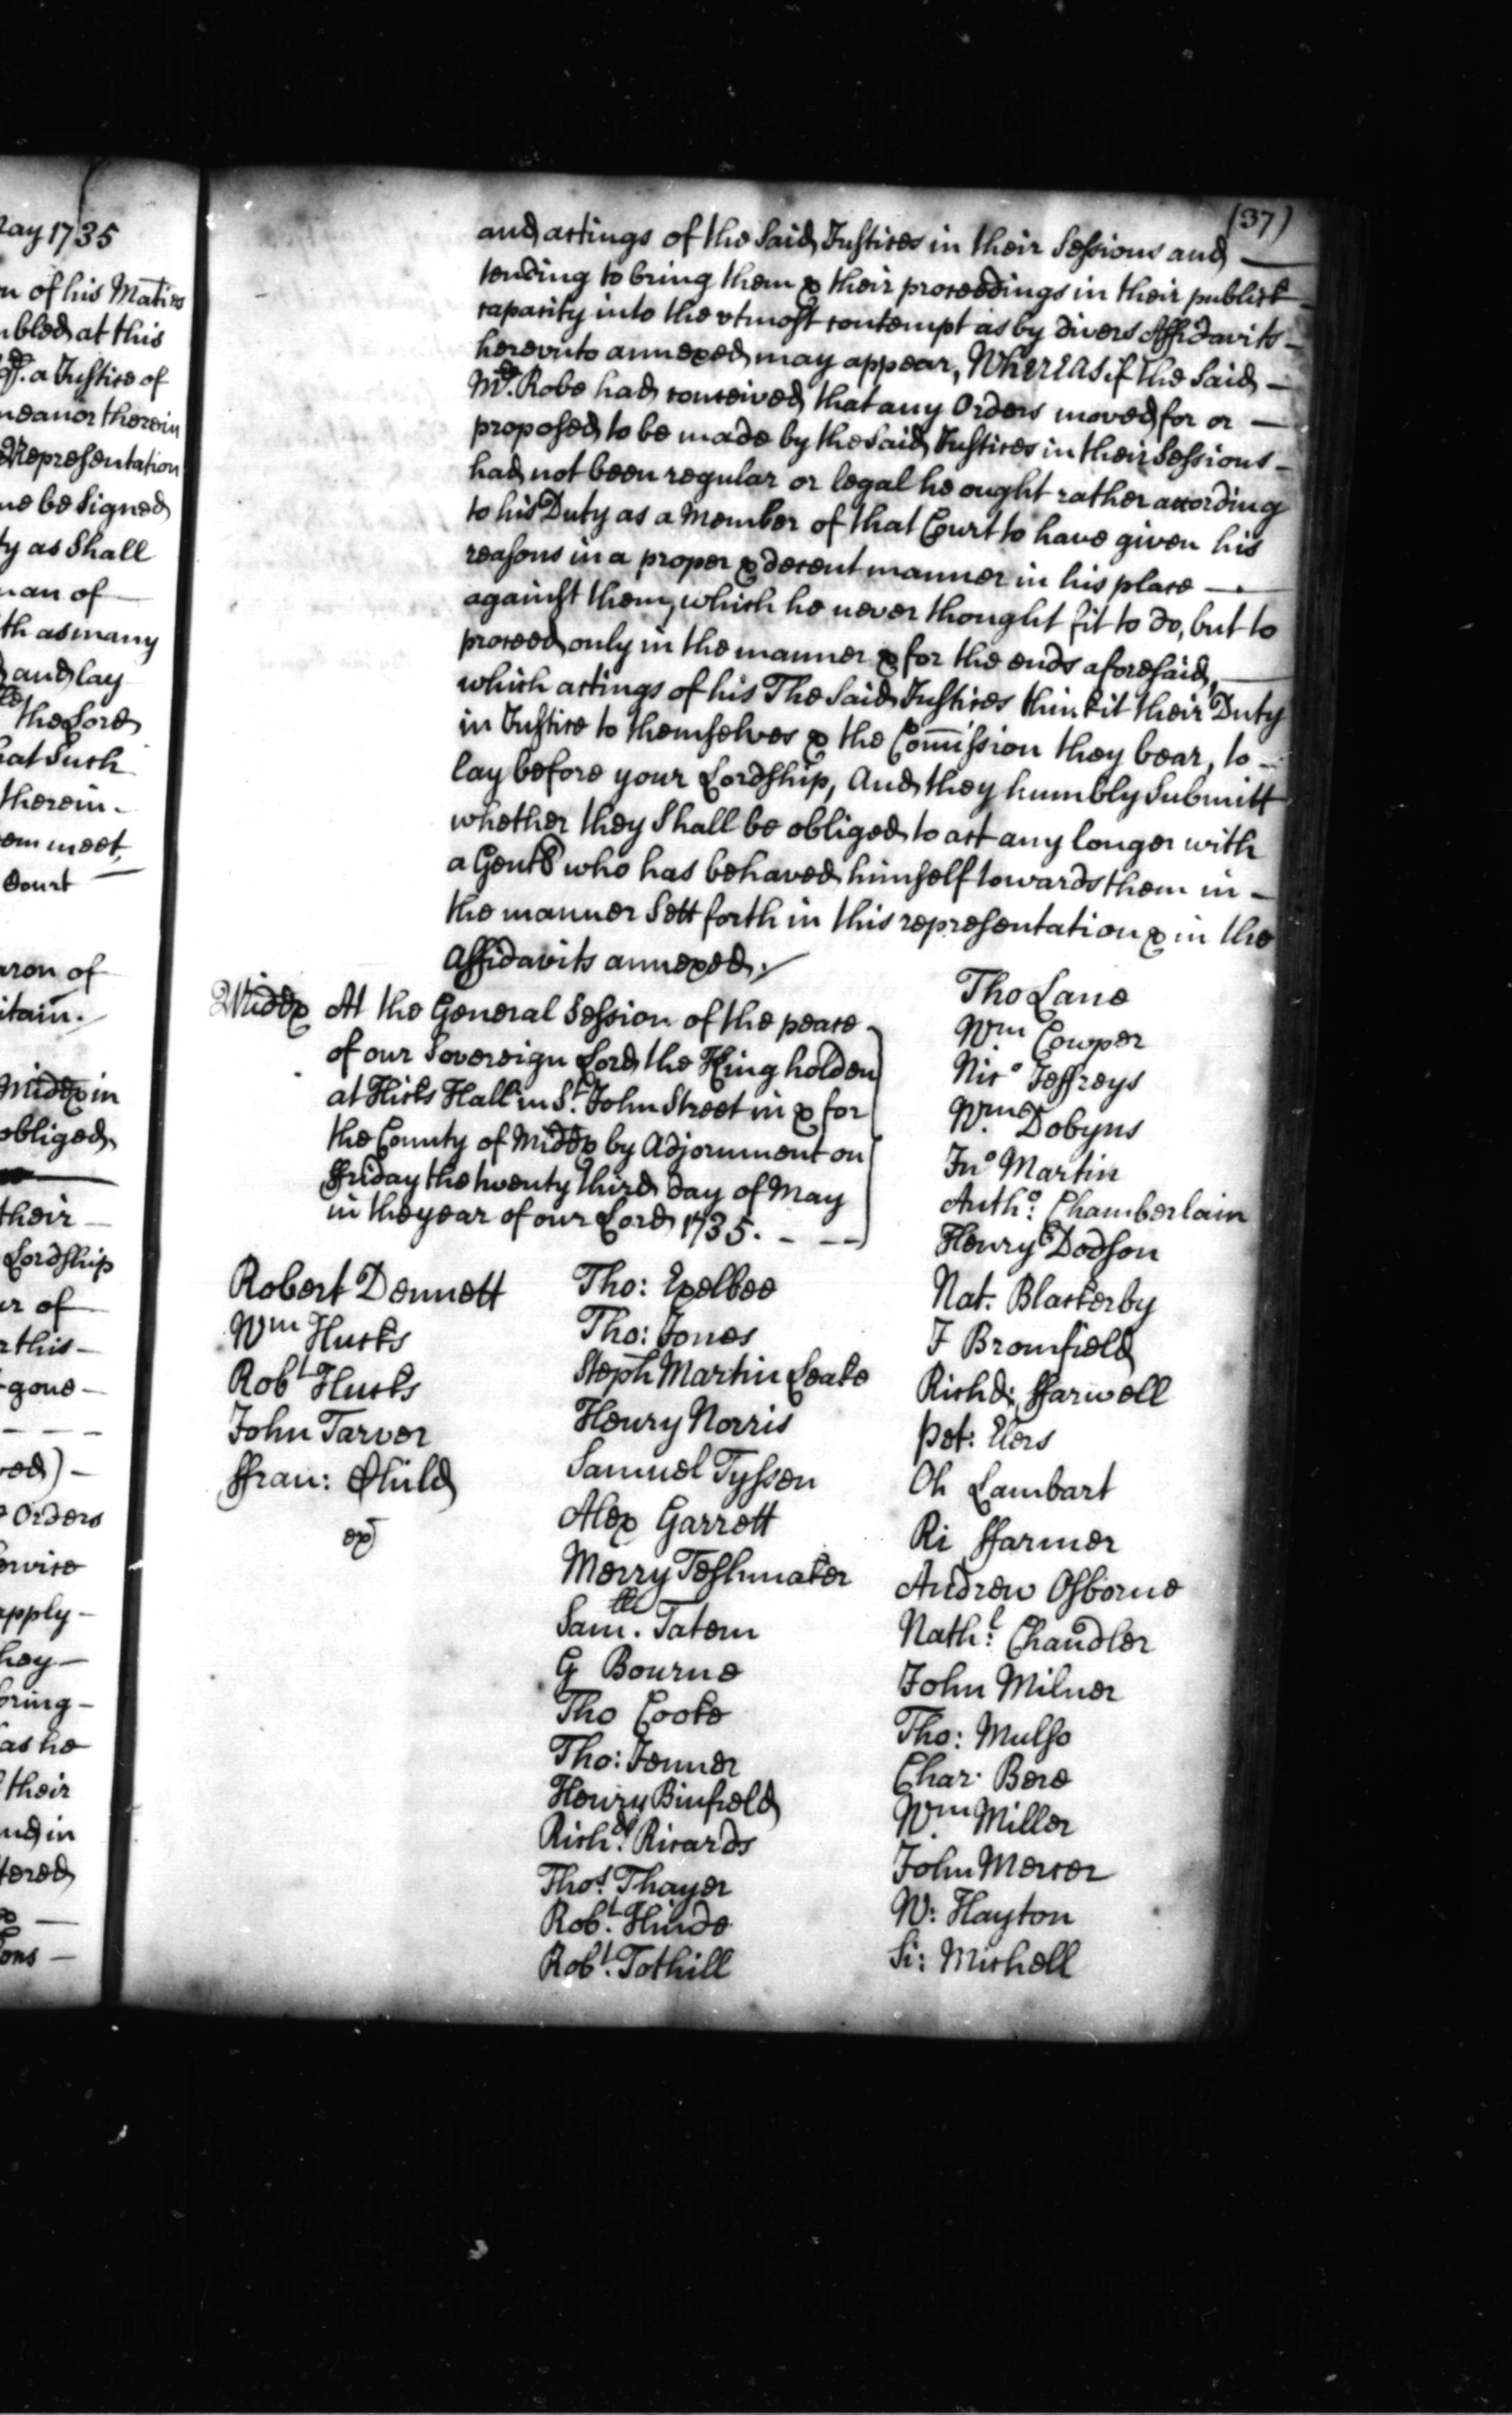 ay 1735
n of his Maties
mbled at this
a Justice of
meanor therein
Representation
me be Signed
ty as Shall
man of
th as many
and lay
the Lord
hat Such
therein
em meet
Court
aron of
itain.
Middx in
obliged
their
Lordship
ur of
r this
gone
ved)
Orders
erwise
apply
they
bring
as he
their
and in
tered
ons
(37)
and actings of the Said Justices in their Sessions and
tending to bring them & their proceedings in their publick
capacity into the vtmost contempt as by divers Affidavits
herevnto annexed may appear, Whereas if the Said
Mr. Robe had conceived that any Orders moved for or
proposed to be made by the Said Justices in their Sessions
had not been regular or legal he ought rather according
to his Duty as a Member of that Court to have given his
reasons in a proper & decent manner in his place
against them, which he never thought fit to do, but to
proceed only in the manner & for the ends aforesaid,
which actings of his The Said Justices think it their Duty
in Justice to themselves & the Com̄ission they bear, to
lay before your Lordship, And they humbly Submitt
whether they Shall be obliged to act any longer with
a Gentl who has behaved himself towards them in
the manner Sett forth in this representation & in the
Affidavits annexed.
Middx At the General Session of the peace
of our Sovereign Lord the King holden
at Hicks Hall in St. John Street in & for
the County of Middx by Adjornment on
ffriday the twenty third day of May
in the year of our Lord 1735.
Robert Dennett
Wm Hucks
Robt Hucks
John Tarver
ffran: Child
exd
Tho: Exelbee
Tho: Jones
Steph Martin Leake
Henry Norris
Samuel Tyssen
Alex Garrett
Merry Teshmaker
Samll. Tatem
G Bourne
Tho Cooke
Tho: Jenner
Henry Binfield
Richd. Ricards
Thos. Thayer
Robt. Hinde
Robt. Tothill
Tho Lane
Wm Cowper
Nico Jeffreys
Wm. Dobyns
Jno Martin
Antho: Chamberlain
Henry Dodson
Nat: Blackerby
J Bromfield
Richd: ffarwell
Pet: Elers
Ch Lambart
Ri ffarmer
Andrew Osborne
Nathl: Chandler
John Milner
Tho: Mulso
Char. Bere
Wm. Miller
John Mercer
W: Hayton
Si: Michell